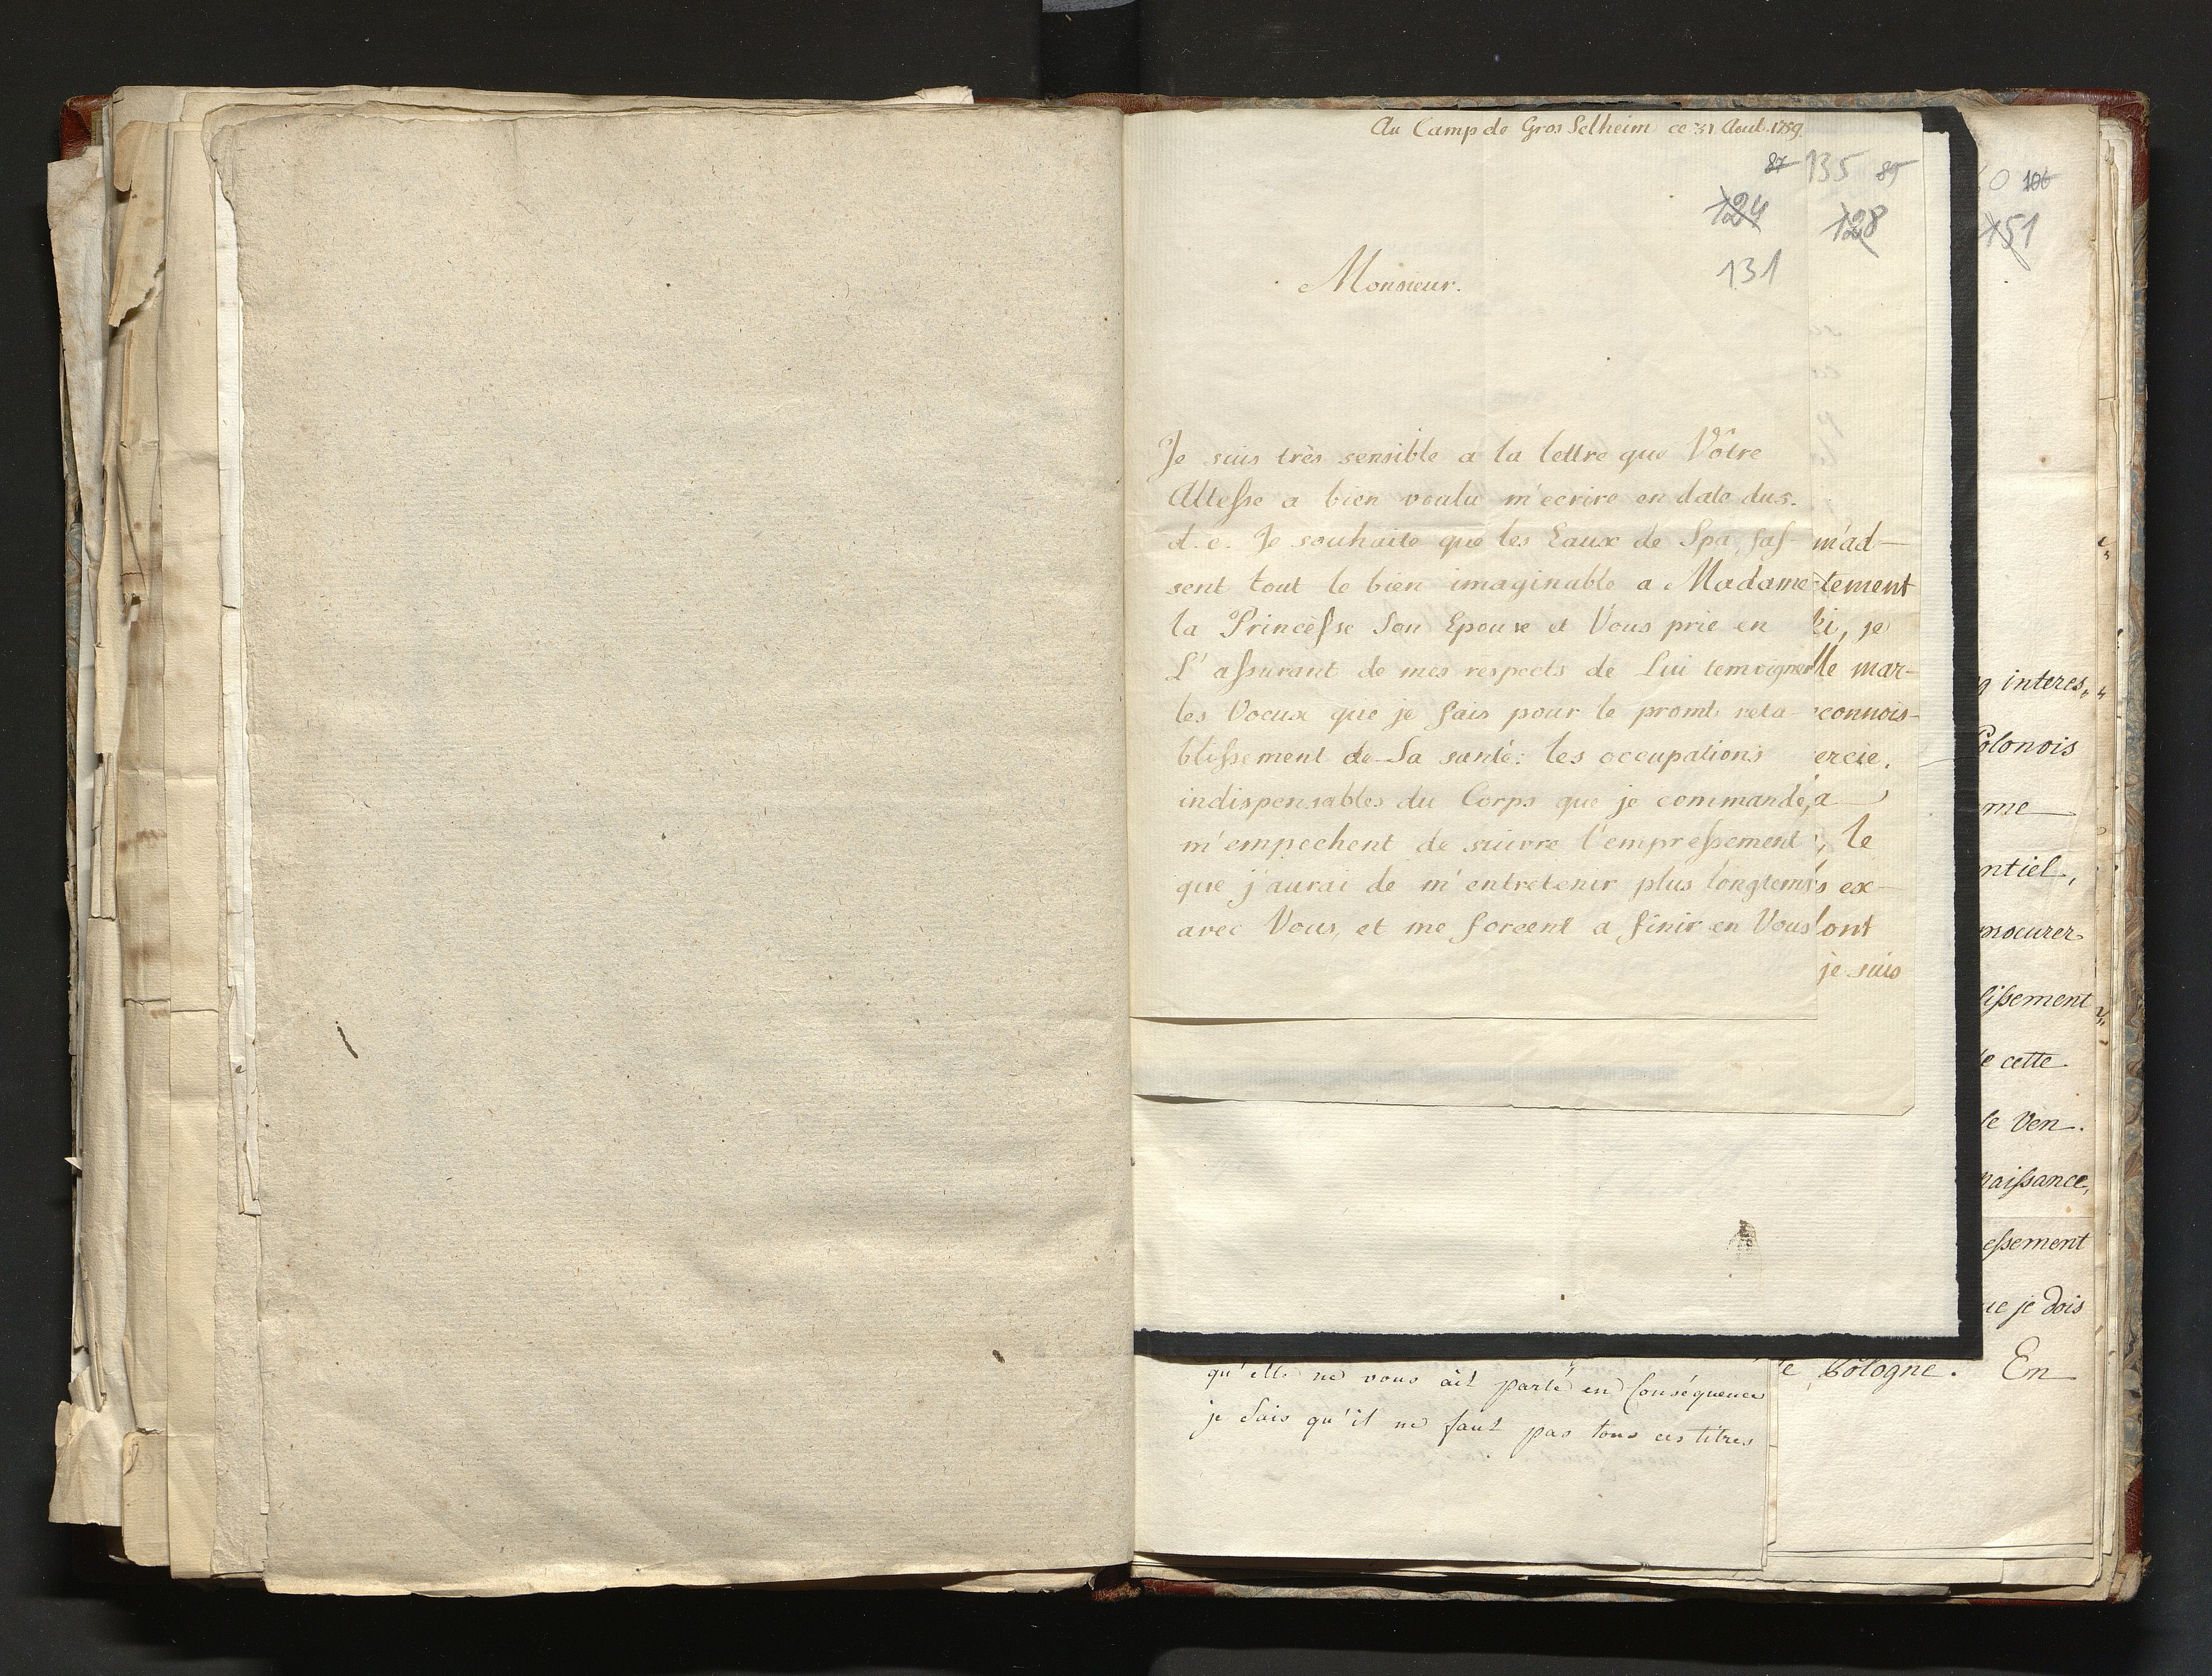 Au Camp de Gros Selheim ce 31 Aout. 1759.
87 135 89
124 128
131
Monsieur.
Je suis très sensible a la lettre que Vôtre
Altesse a bien voulu m'ecrire en date du 5.
d. c. Je souhaite que les Eaux de Spa, fas-
sent tout le bien imaginable a Madame
la Princèsse Son Epouse et Vous prie en
L'assurant de mes respects de Lui temoigner
les Voeux que je fais pour le promt reta-
blissement de Sa santé: les occupations
indispensables du Corps que je commande,
m'empechent de suivre l'empressement
que j'aurai de m'entretenir plus longtems
avec Vous, et me forcent a finir en Vous
m'ad-
tement
ki, je
lle mar-
connois-
ercie,
a
, le
s ex-
ont
je suis
qu'elle ne vous ait parlé en Conséquence
je Sais qu'il ne faut pas tous ces titres
0 106
151
interes,,
Polonois
me
ntiel,
procurer
lissement
e cette
le Ven.
naissance,
essement
ue je dois
e Cologne. En